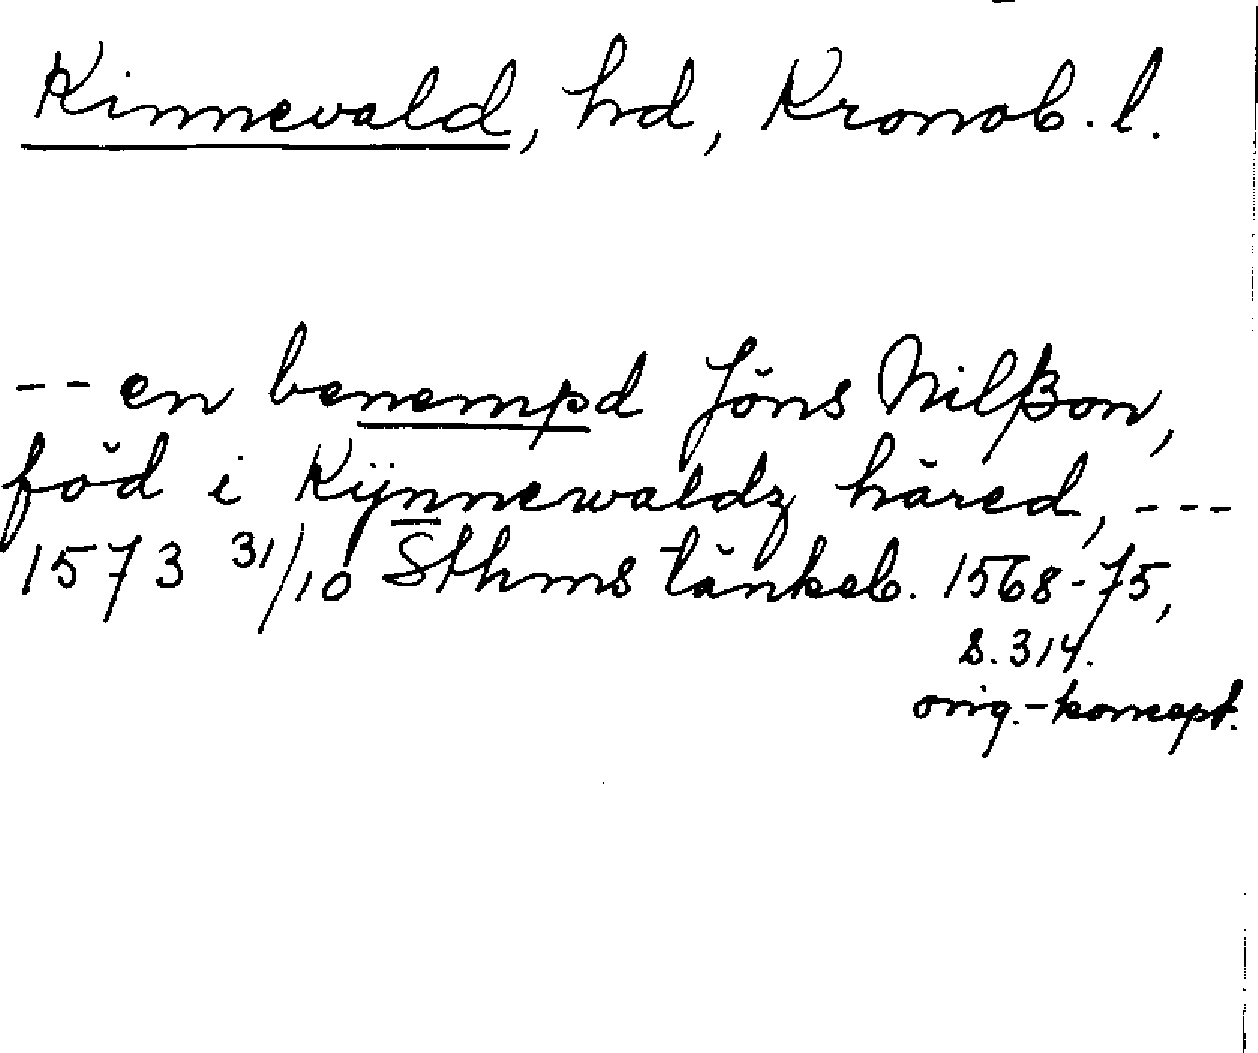 Kinnevald, hd, Kronob. l.
-- en benempd Jöns Nilßon,
föd i Kÿnnewaldz häred, ---
1573 31/10 Sthms tänkeb. 1568-75,
s. 314.
orig.-koncept.